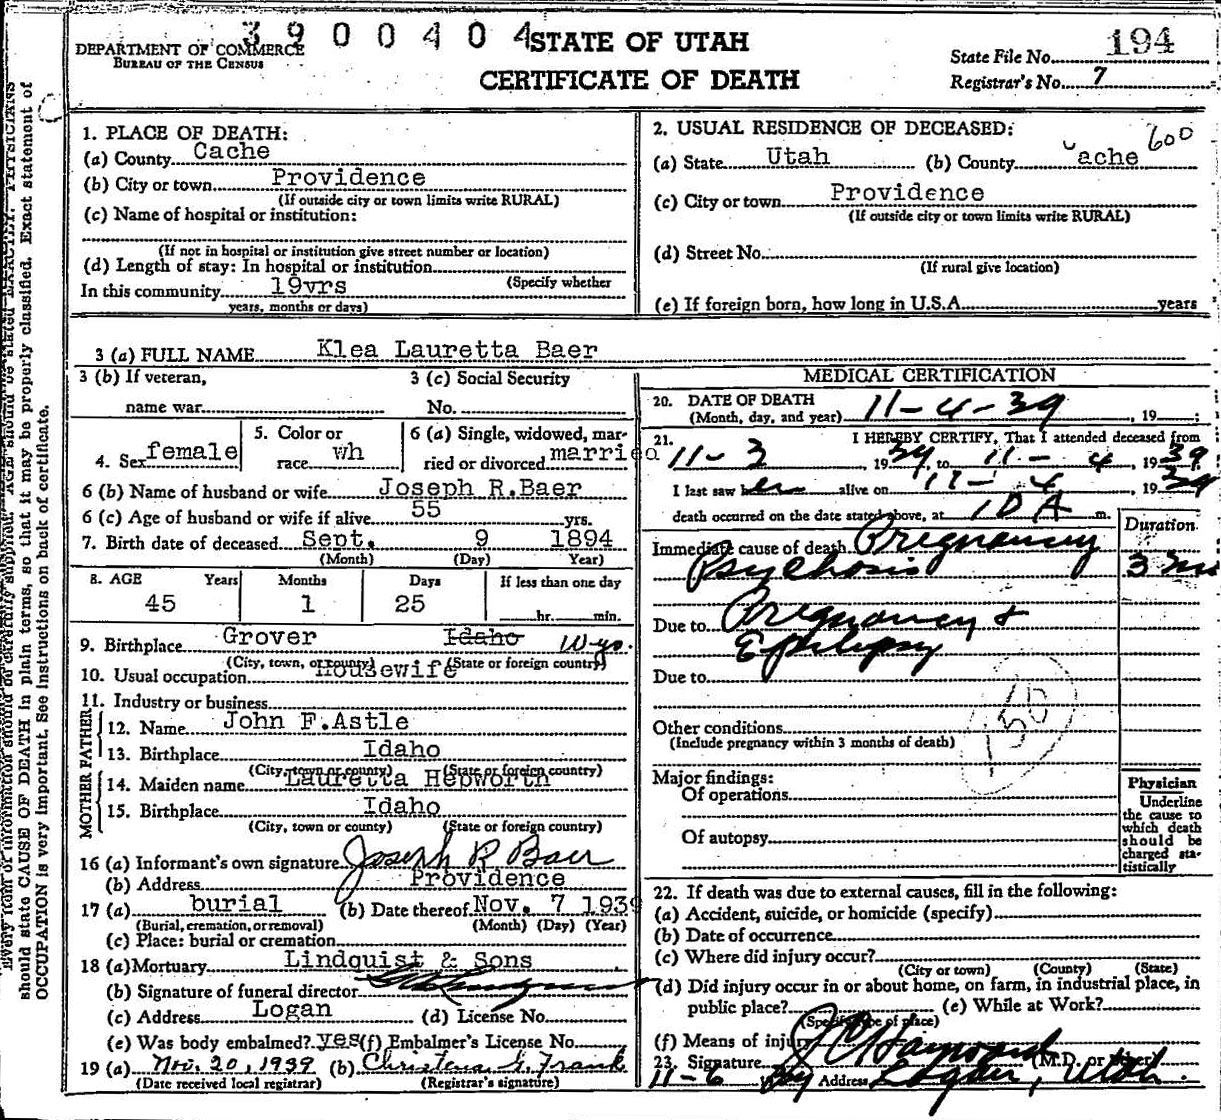 3900404
DEPARTMENT OF COMMERCE
BUREAU OF THE CENSUS
STATE OF UTAH
CERTIFICATE OF DEATH
State File No. 194
Registrar's No. 7
should state CAUSE OF DEATH in plain terms, so that it may be properly classified. Exact statement of
OCCUPATION is very important. See instructions on back of certificate.
1. PLACE OF DEATH:
(a) County Cache
(b) City or town Providence
(If outside city or town limits write RURAL)
(c) Name of hospital or institution:
(If not in hospital or institution give street number or location)
(d) Length of stay: In hospital or institution
(Specify whether
In this community 19yrs
years, months or days)
2. USUAL RESIDENCE OF DECEASED: 600
(a) State Utah (b) County Cache
(c) City or town Providence
(If outside city or town limits write RURAL)
(d) Street No.
(If rural give location)
(e) If foreign born, how long in U.S.A. years
3 (a) FULL NAME Klea Lauretta Baer
3 (b) If veteran, name war
3 (c) Social Security No.
4. Sex female
5. Color or race wh
6 (a) Single, widowed, married or divorced married
6 (b) Name of husband or wife Joseph R.Baer
6 (c) Age of husband or wife if alive 55 yrs.
7. Birth date of deceased Sept. 9 1894
(Month) (Day) Year)
8. AGE Years Months Days If less than one day
45 1 25 hr. min.
9. Birthplace Grover Idaho Wyo.
(City, town, or county) (State or foreign country)
10. Usual occupation Housewife
11. Industry or business
FATHER
12. Name John F.Astle
13. Birthplace Idaho
(City, town or county) (State or foreign country)
MOTHER
14. Maiden name Lauretta Hepworth
15. Birthplace Idaho
(City, town or county) (State or foreign country)
16 (a) Informant's own signature Joseph R Baer
(b) Address Providence
17 (a) burial (b) Date thereof Nov. 7 1939
(Burial, cremation, or removal) (Month) (Day) (Year)
(c) Place: burial or cremation
18 (a) Mortuary Lindquist & Sons
(b) Signature of funeral director
(c) Address Logan (d) License No.
(e) Was body embalmed? yes (f) Embalmer's License No.
19 (a) Nov. 20, 1939 (b) Christena G. Frank
(Date received local registrar) (Registrar's signature)
MEDICAL CERTIFICATION
20. DATE OF DEATH
(Month, day, and year) 11-4-39, 19 ;
21. I HEREBY CERTIFY, That I attended deceased from
11-3, 1939, to 11-4, 1939
I last saw her alive on 11-4, 1939
death occurred on the date stated above, at 10 A m.
Duration
Immediate cause of death Pregnancy
Psychosis 3
Due to Pregnancy &
Epilepsy
Due to
150
Other conditions
(Include pregnancy within 3 months of death)
Major findings:
Of operations
Of autopsy
Physician
Underline
the cause to
which death
should be
charged sta-
tistically
22. If death was due to external causes, fill in the following:
(a) Accident, suicide, or homicide (specify)
(b) Date of occurrence
(c) Where did injury occur?
(City or town) (County) (State)
(d) Did injury occur in or about home, on farm, in industrial place, in
public place? (e) While at Work?
(Specify type of place)
(f) Means of injury
23. Signature J C Hayward (M.D. or other)
11-6 Address Logan, Utah.